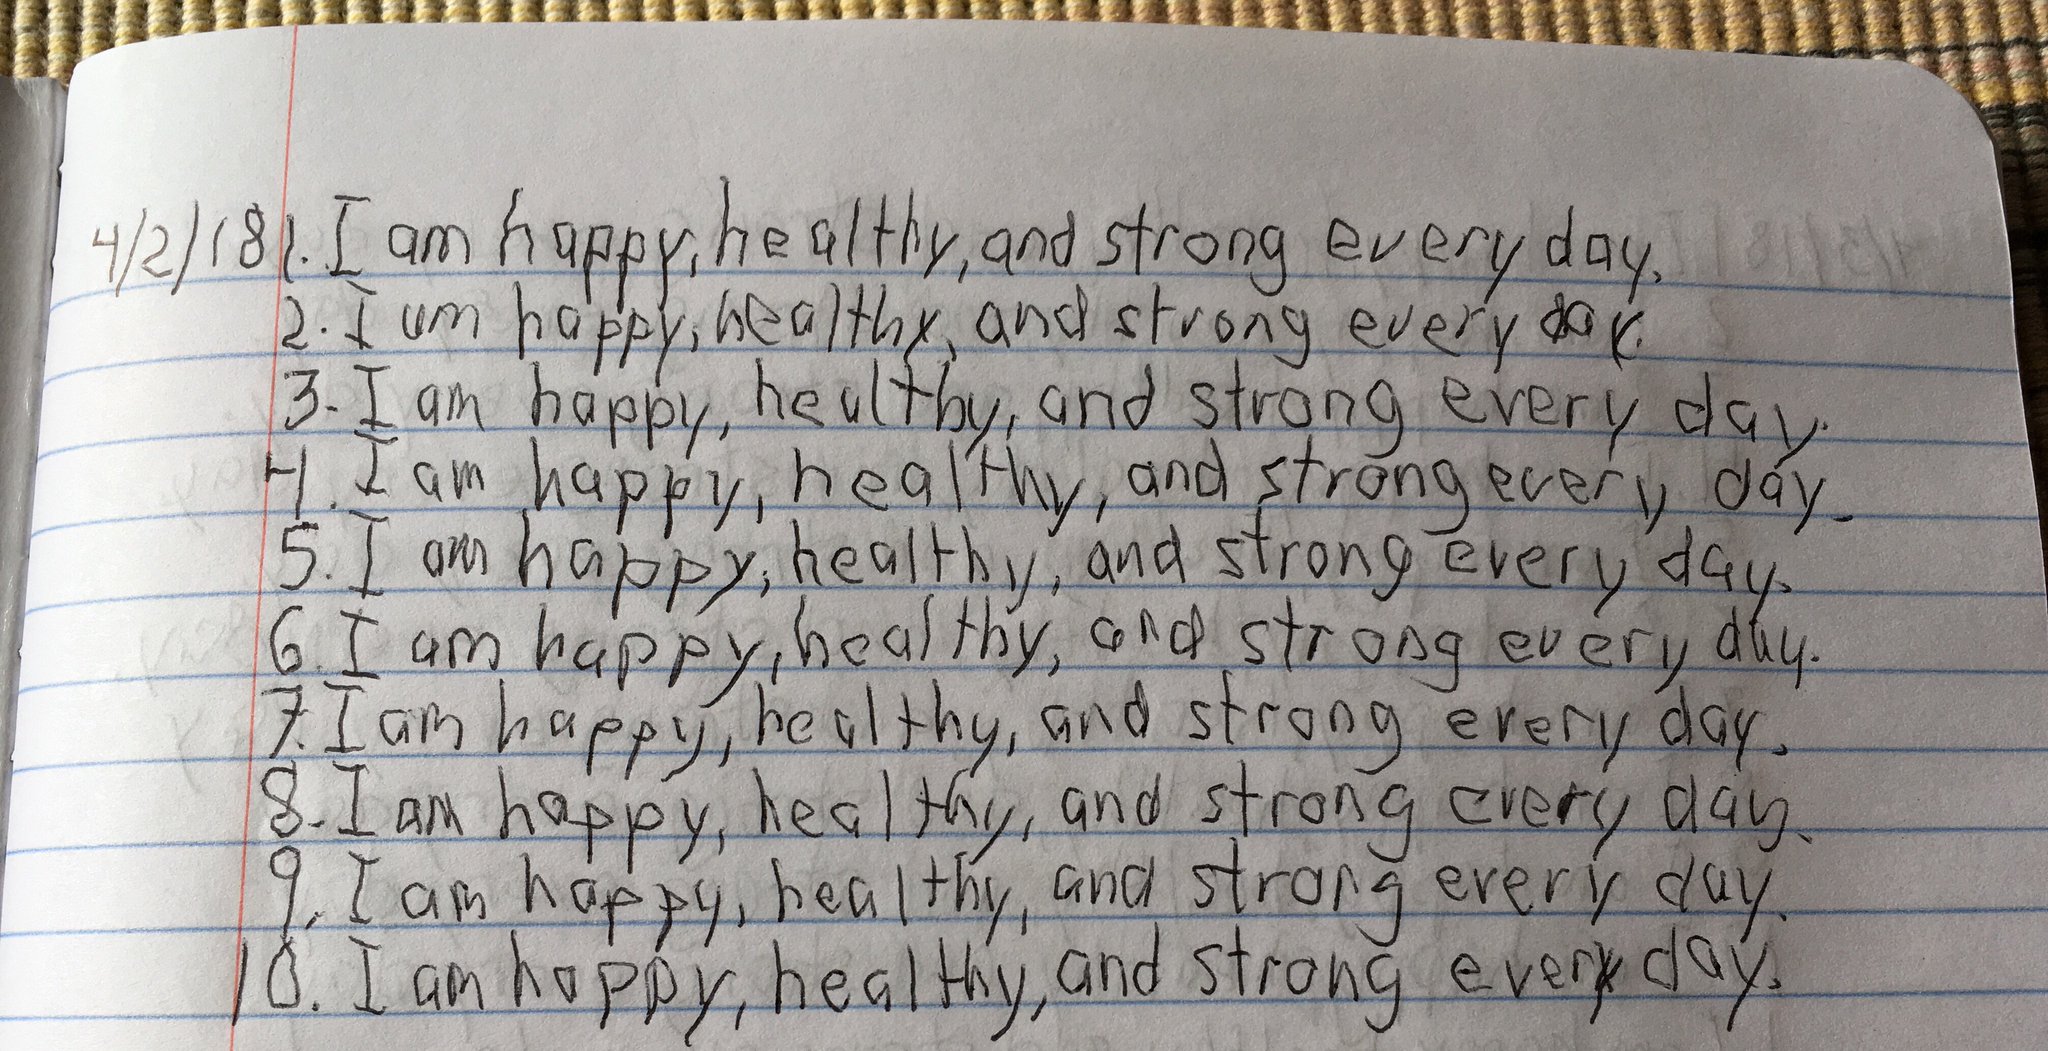 4/2/18 1. I am happy, healthy, and strong every day.
2. I am happy, healthy, and strong every day.
3. I am happy, healthy, and strong every day.
4. I am happy, healthy, and strong every day.
5. I am happy, healthy, and strong every day.
6. I am happy, healthy, and strong every day.
7. I am happy, healthy, and strong every day.
8. I am happy, healthy, and strong every day.
9. I am happy, healthy, and strong every day.
10. I am happy, healthy, and strong every day.